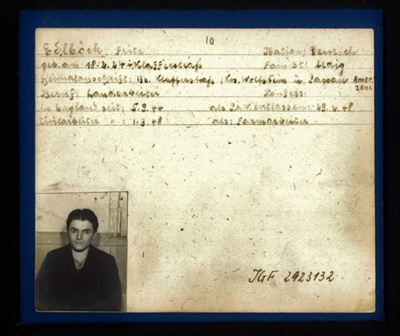 10
Cölböck, Fritz Nation: Deutsch
geb. am 18.2. Fam. St: ledig
Heimatanschrift: Kr. Wolfstein b. Passau Amer. Zone
Beruf: Landarbeiter Konfess:
In England seit: 5.9.44 als P.o.W entlassen: 48
Zivilarbeiter " : 1.3.48 als: Farmarbeiter
JGF 2923132